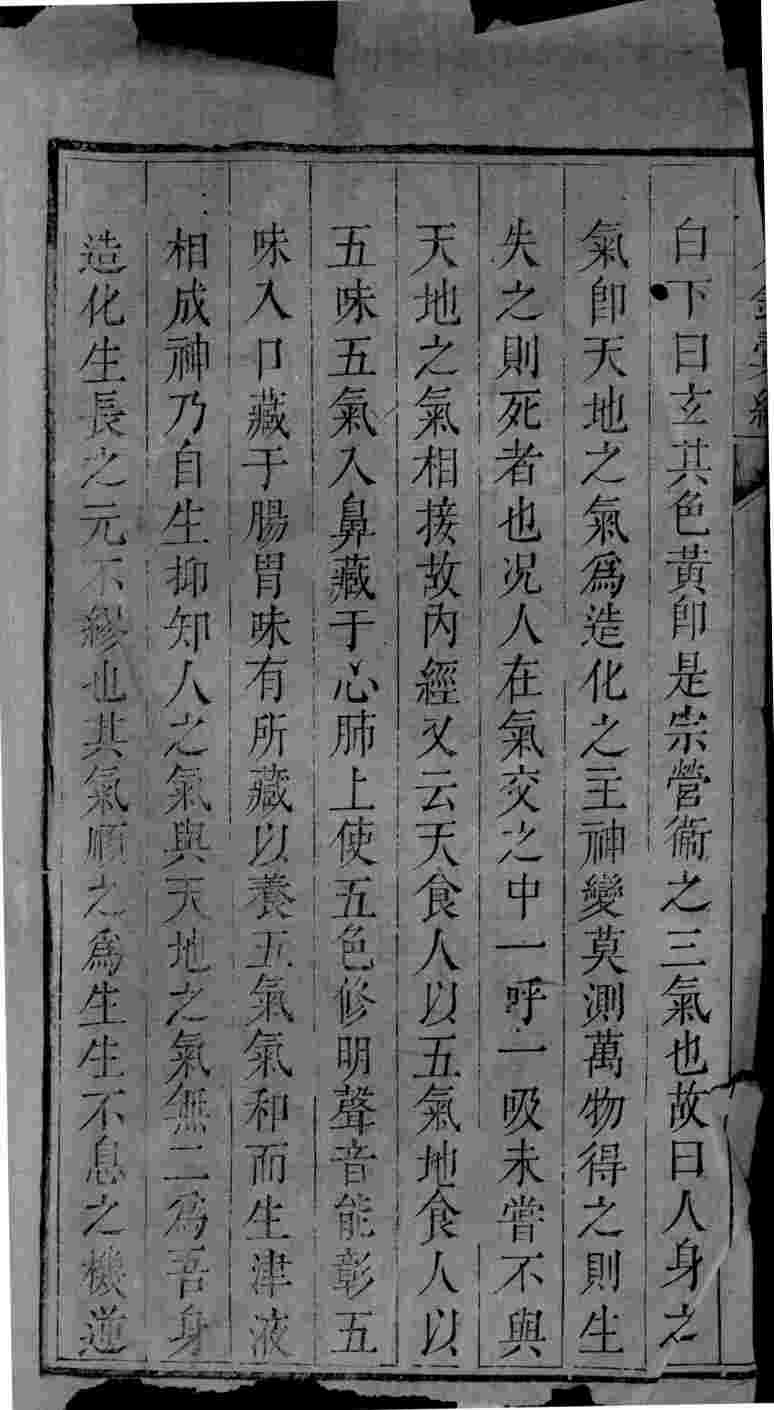 白下曰玄其色黃卽是宗營衞之三氣也故曰人身之
氣卽天地之氣爲造化之主神變莫測萬物得之則生
失之則死者也况人在氣交之中一呼一吸未嘗不與
天地之氣相接故內經又云天食人以五氣地食人以
五味五氣入鼻藏于心肺上使五色修明聲音能彰五
味入口藏于腸胃味有所藏以養五氣氣和而生津液
相成神乃自生抑知人之氣與天地之氣無二爲吾身
造化生長之元不繆也其氣順之爲生生不息之機逆